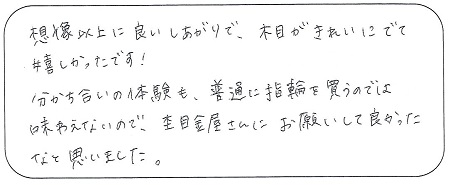 想像以上に良いしあがりで、木目がきれいにでて
嬉しかったです!
分かち合いの体験も、普通に指輪を買うのでは
味わえないので、杢目金屋さんにお願いして良かった
なと思いました。